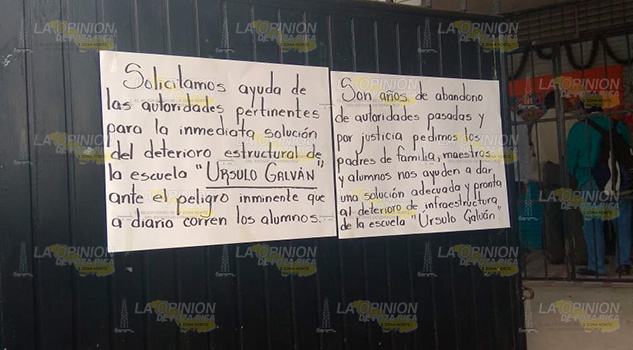 Solicitamos ayuda de
las autoridades pertinentes
para la inmediata solución
del deterioro estructural de
la escuela "URSULO GALVÁN"
ante el peligro inminente que
a diario corren los alumnos.
Son años de abandono
de autoridades pasadas y
por justicia pedimos los
padres de familia, maestros
y alumnos nos ayuden a dar
una solución adecuada y pronta
al deterioro de infraestructura,
de la escuela "Ursulo Galván"
LA OPINION
DE POZA RICA